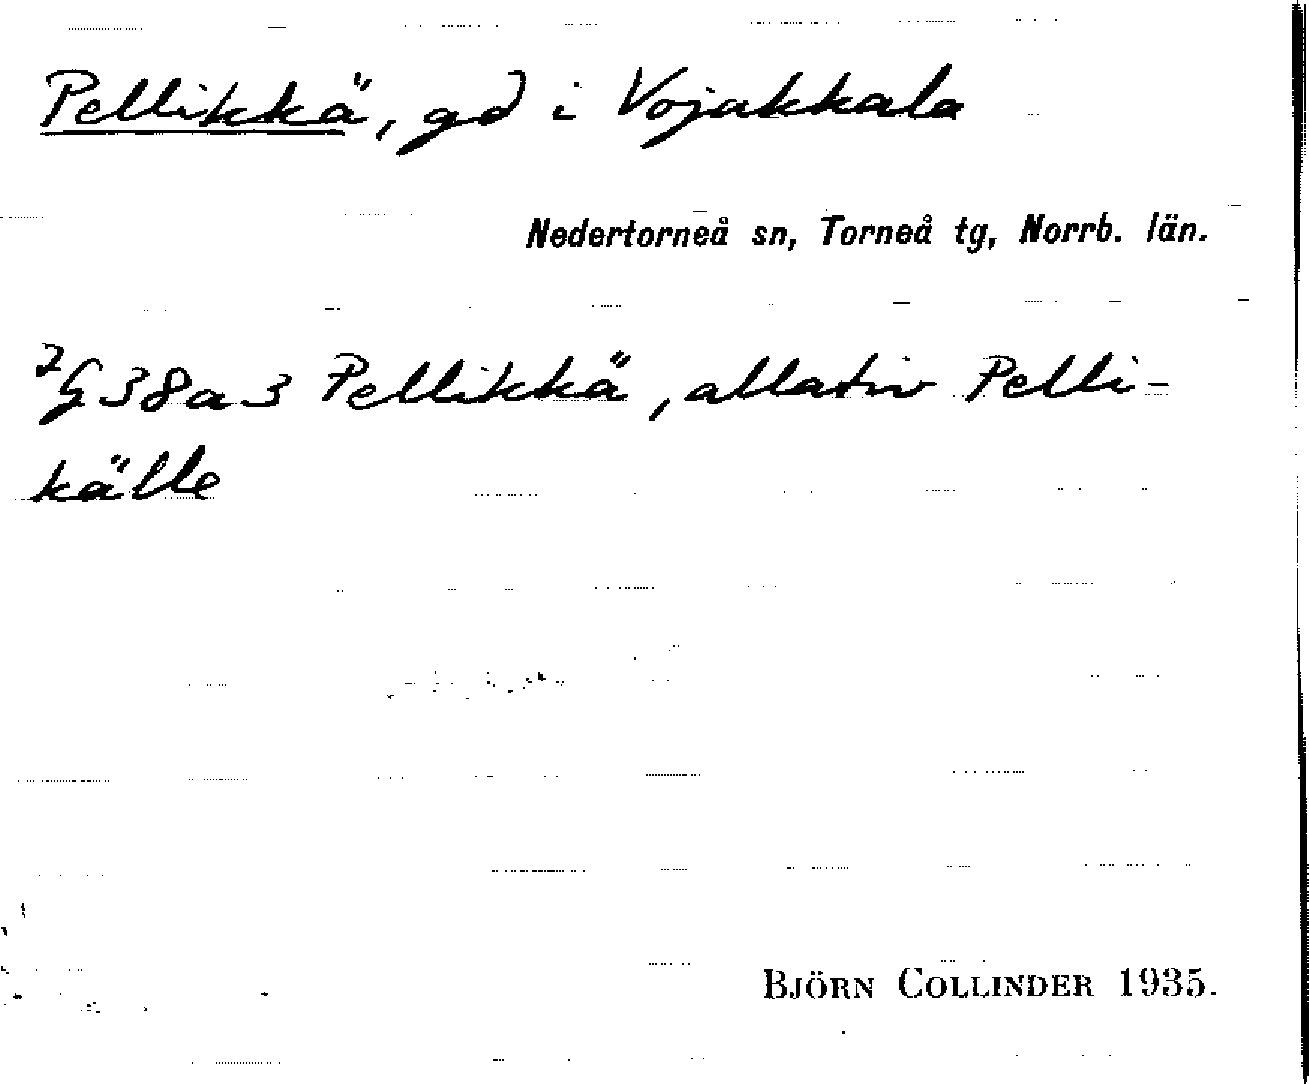 Pellikkä, gd i Vojakkala
Nedertorneå sn, Torneå tg, Norrb. län.
²G38a3 Pellikkä, allativ Pelli-
källe
BJÖRN COLLINDER 1935.